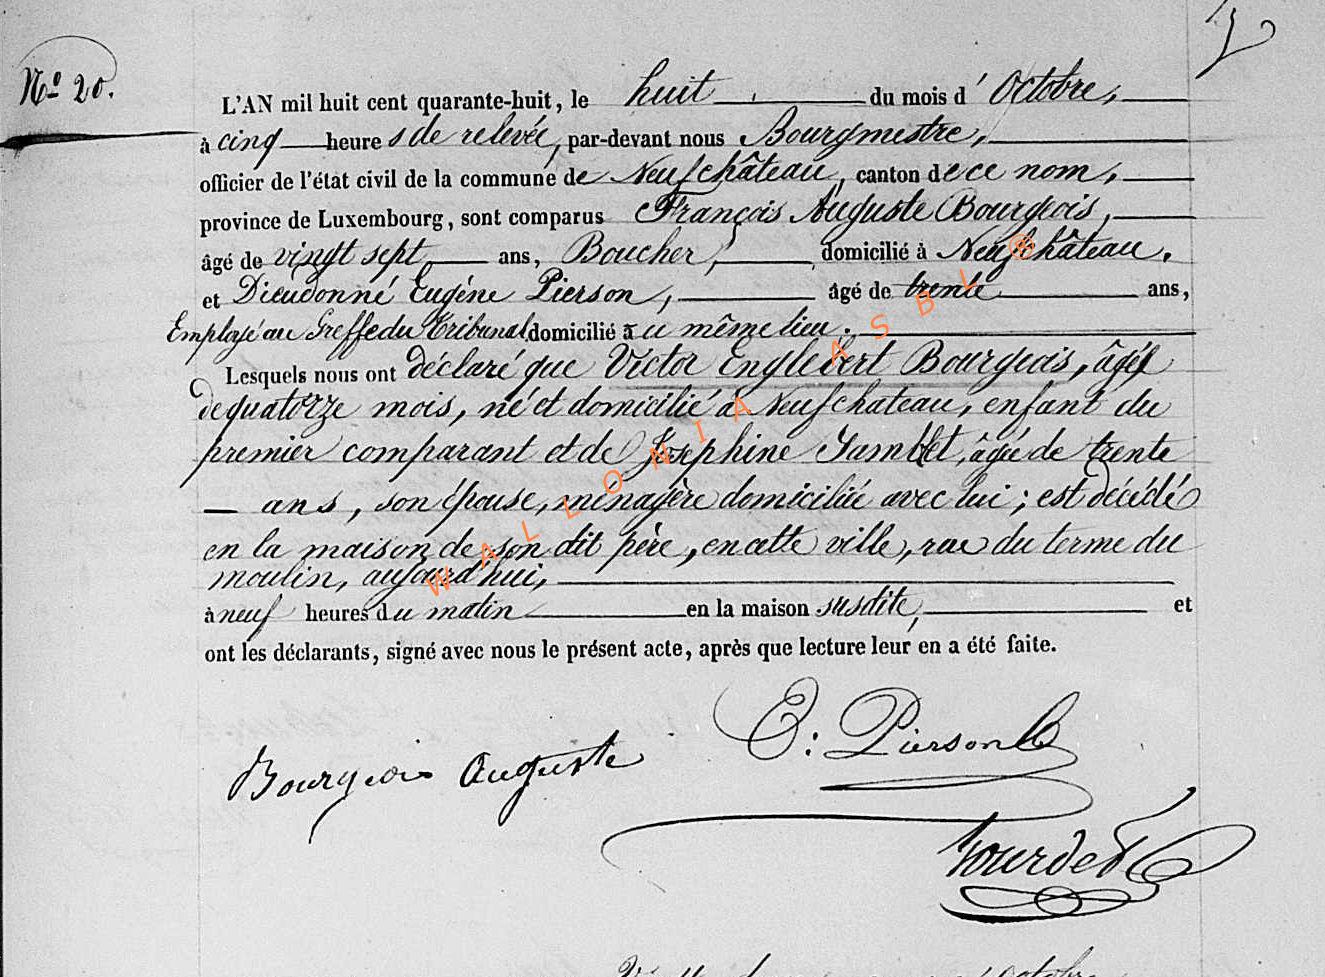 N.º 20.
L'AN mil huit cent quarante-huit, le huit du mois d'Octobre,
à cinq heures de relevée, par-devant nous Bourgmestre,
officier de l'état civil de la commune de Neufchâteau, canton de ce nom,
province de Luxembourg, sont comparus François Auguste Bourgeois,
âgé de vingt sept ans, Boucher, domicilié à Neufchâteau.
et Dieudonné Eugéne Pierson, âgé de trente ans,
Employé au Greffe du Tribunal, domicilié au même lieu.
Lesquels nous ont déclaré que Victor Englebert Bourgeois, âgé
de quatorze mois, né et domicilié à Neufchateau, enfant du
premier comparant et de Joséphine Jamblet, âgée de trente
ans, son épouse, ménagère domiciliée avec lui; est décédé
en la maison de son dit père, en cette ville, rue du terme du
moulin, aujourd'hui,
à neuf heures du matin en la maison susdite, et
ont les déclarants, signé avec nous le présent acte, après que lecture leur en a été faite.
E: Pierson
Bourgeois Auguste
Gourdet
WALLONIA ASBL ®